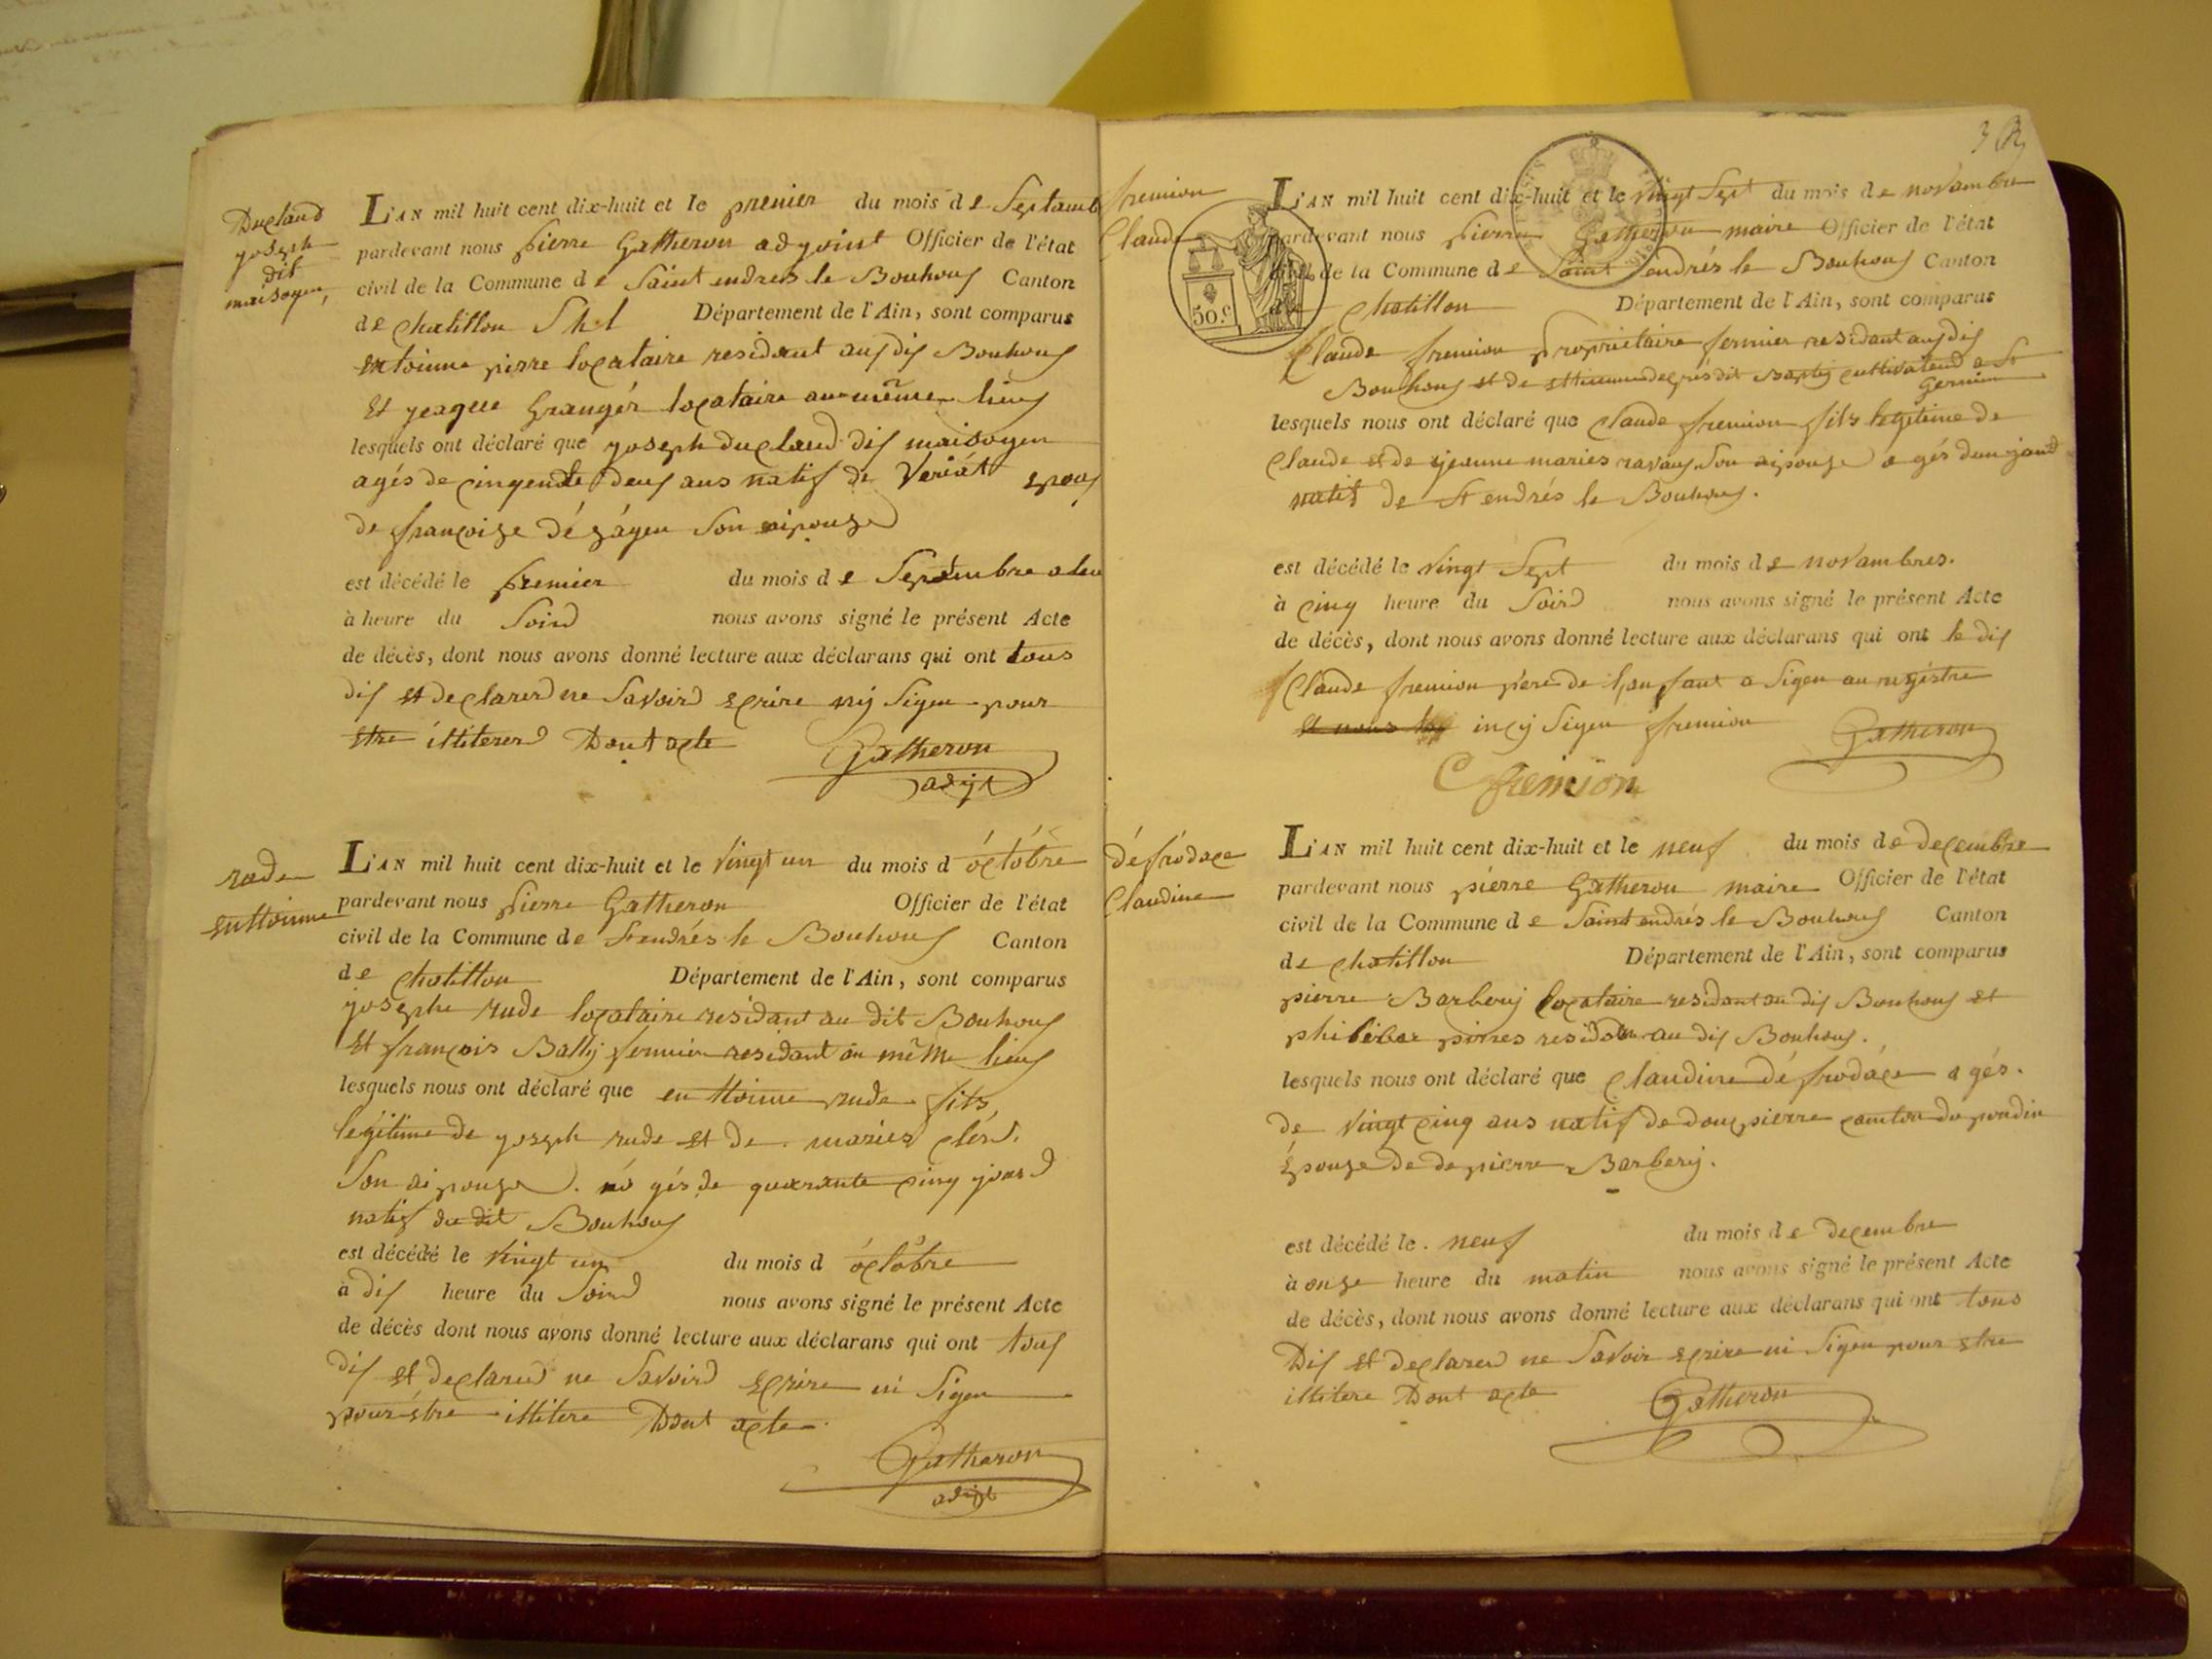 Duclaud
yoseph
dit
maisoyen,
L'AN mil huit cent dix-huit et le premier du mois de Septamb
pardevant nous pierre Gatheron adyoint Officier de l'état
civil de la Commune de Saint endrés le Bouhous Canton
de Chatillon Département de l'Ain, sont comparus
entoinne pirre locataire residant audis Bouhous
Et yeaque Granger locataire au même lieus
lesquels ont déclaré que yoseph duclaud dis maisoyen
agés de cinqende deus ans natif de Veriát epous
de françoise dégágen Son aipouse
est décédé le premier du mois de Septembre
à heure du Soird nous avons signé le présent Acte
de décès, dont nous avons donné lecture aux déclarans qui ont tous
dis et declarerd ne Savoird ecrire nij Sigen pour
etre illitererd Dont acte Gatheron
adyt
rude
enttoinne
L'AN mil huit cent dix-huit et le Vingt un du mois d óctóbre
pardevant nous pierre Gatheron Officier de l'état
civil de la Commune de St endrés le Bouhous Canton
de Chatillon Département de l'Ain, sont comparus
yosephe rude locataire residant au dit Bouhous
Et françois Ballij fermier residant au même lieus
lesquels nous ont déclaré que enttoinne rude fils,
legitime de yoseph rude et de maries
Son aipouse. gés de quarante cinq yours
natif du dit Bouhous
est décédé le Vingt un du mois d óctóbre
à dis heure du Soird nous avons signé le présent Acte
de décès dont nous avons donné lecture aux déclarans qui ont tous
dis et declarerd ne Savoird ecrire ni Sigen
pour être illitere Dont acte.
Gatheron
adyt
3
fremion
Claude
50.c
L'AN mil huit cent dix-huit et le Vingt Sept du mois de novambre
pardevant nous pierre Gatheron maire Officier de l'état
civil de la Commune de Saint endrés le Bouhous Canton
de Chatillon Département de l'Ain, sont comparus
Claude fremion proprietaire fermier residant audis
Bouhous et de ettienne dit cultivateur a St
Germin
lesquels nous ont déclaré que Claude fremion fils legitime de
Claude et de yeanne maries ravaus Son aipouse agés dun
natif de St endrés le Bouhous.
est décédé le Vingt Sept du mois de novambres.
à cinq heure du Soird nous avons signé le présent Acte
de décès, dont nous avons donné lecture aux déclarans qui ont le dis
Claude fremion pere de lanfant a Sigen au registre
et nous incij Sigen fremion Gatheron
C fremion
défrodace
Claudine
L'AN mil huit cent dix-huit et le neuf du mois de decembre
pardevant nous pierre Gatheron maire Officier de l'état
civil de la Commune de Saint endrés le Bouhous Canton
de chatillon Département de l'Ain, sont comparus
pierre Barberij locataire residant au dis Bouhous et
pirres residan au dis Bouhous.
lesquels nous ont déclaré que Claudine défrodáce agés.
de Vingt cinq ans natif de dompierre canton du pondin
épouse de de pierre Barberij.
est décédé le. neuf du mois de decembre
à onse heure du matin nous avons signé le présent Acte
de décès, dont nous avons donné lecture aux déclarans qui ont tous
Dis et declarerd ne Savoir ecrire ni Sigen pour etre
illitere Dont acte Gatheron